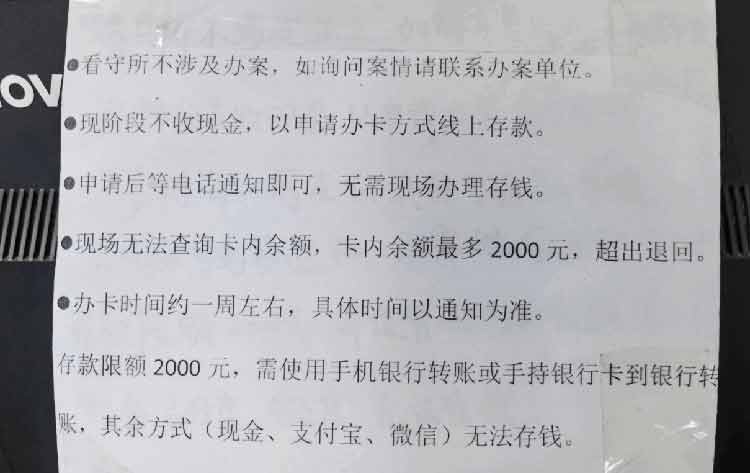 ●看守所不涉及办案，如询问案情请联系办案单位。
OV
●现阶段不收现金，以申请办卡方式线上存款。
●申请后等电话通知即可，无需现场办理存钱。
●现场无法查询卡内余额，卡内余额最多 2000 元，超出退回。
●办卡时间约一周左右，具体时间以通知为准。
存款限额 2000 元，需使用手机银行转账或手持银行卡到银行转
账，其余方式（现金、支付宝、微信）无法存钱。